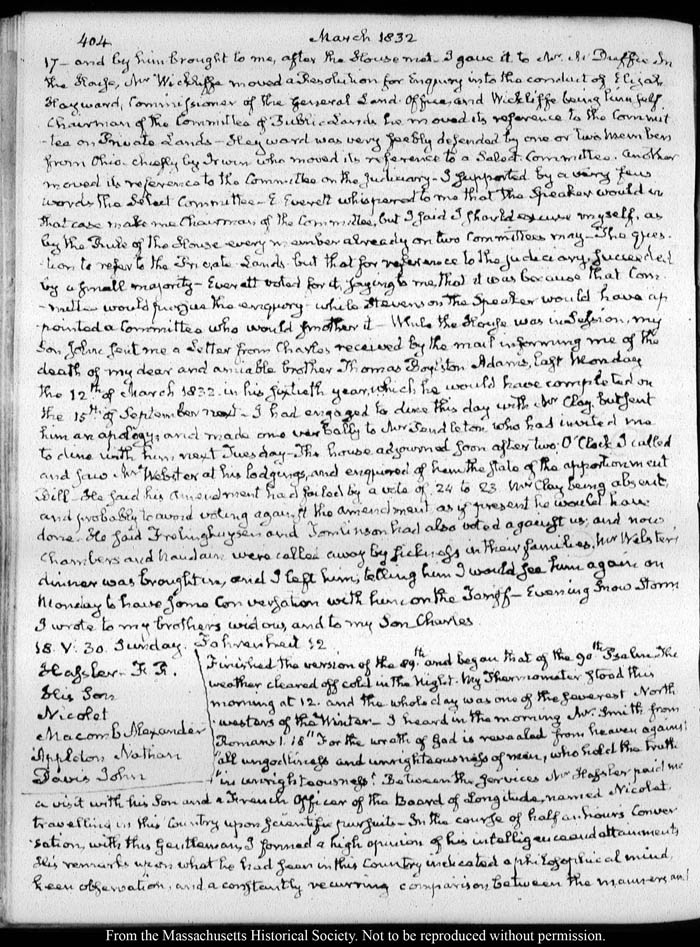 404 March 1832
17 — and by him brought to me, after the House met — I gave it to Mr. McDuffie In
the House, Mr Wickliffe moved a Resolution for Enquiry into the conduct of Elijah
Hayward, Commissioner of the General Land-Office, and Wickliffe being himself
Chairman of the Committee of Public Lands he moved its reference to the Commit-
-tee on Private Lands — Hayward was very feebly defended by one or two members
from Ohio — chiefly by Irwin who moved its reference to a Select Committee. Another
moved its reference to the Committee on the Judiciary — I supported by a very few
words the Select Committee — E. Everett whispered to me that the Speaker would in
that case make me Chairman of the Committee, but I said I should excuse myself, as
by the Rule of the House every member already on two Committees may. The ques-
tion to refer to the Private Lands but that for reference to the Judiciary, succeeded
by a small majority — Everett voted for it, saying to me, that it was because that Com-
-mittee would pursue the enquiry — while Stevenson the Speaker would have ap-
-pointed a Committee who would smother it — While the House was in Session, my
Son John sent me a Letter from Charles received by the mail informing me of the
death of my dear and amiable brother Thomas Boylston Adams, last Monday
the 12th of March 1832. in his sixtieth year, which he would have completed on
the 15th of September next — I had engaged to dine this day with Mr Clay, but sent
him an apology; and made one verbally to Mr Pendleton who had invited me
to dine with him next Tuesday — The house adjourned soon after two O'Clock I called
and saw Mr Webster at his lodgings, and enquired of him the state of the apportionment
Bill — He said his amendment had failed by a vote of 24 to 23 Mr Clay being absent,
and probably to avoid voting against the amendment as if present he would have
done. He said Frelinghuysen and Tomlinson had also voted against us; and now
Chambers and Naudain were called away by sickness in their families. Mr Webster's
dinner was brought in, and I left him, telling him I would see him again on
Monday to have some Conversation with him on the Tariff — Evening Snow Storm
I wrote to my brothers widow, and to my Son Charles.
18. V. 30. Sunday. Fahrenheit 12.
Hassler. F. R.
His Son
Nicolet
Macomb Alexander
Appleton Nathan
Davis John
Finished the version of the 89th and began that of the 90th Psalm. The
weather cleared off cold in the Night. My Thermometer stood this
morning at 12. and the whole day was one of the severest North
westers of the Winter — I heard in the morning Mr. Smith from
Romans 1. 18 "For the wrath of God is revealed from heaven against
"all ungodliness and unrighteousness of men, who hold the truth
"in unrighteousness." Between the services Mr Hassler paid me
a visit with his Son and a French Officer of the Board of Longitude, named Nicolet.
travelling in this Country upon scientific pursuits — In the course of half an hours Conver-
sation, with this Gentleman, I formed a high opinion of his intelligence and attainments
His remarks upon what he had seen in this Country indicated a philosophical mind,
keen observation, and a constantly recurring comparison between the manners and
From the Massachusetts Historical Society. Not to be reproduced without permission.